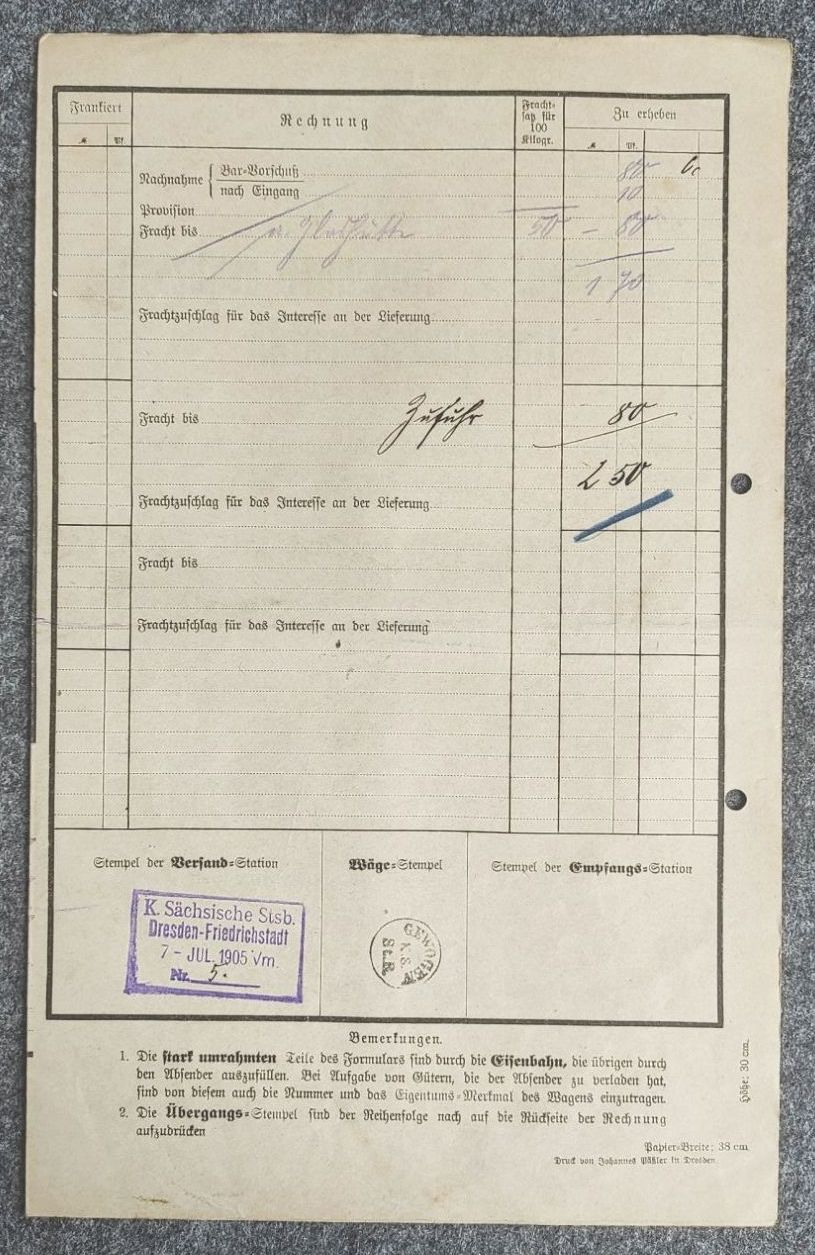 Frankiert
Rechnung
Fracht-
satz für
100
Kilogr.
Zu erheben
ℳ Pf. ℳ Pf.
Nachnahme { Bar-Vorschuß 80
nach Eingang 10
Provision
Fracht bis 50 – 80
1 70
Frachtzuschlag für das Interesse an der Lieferung
Fracht bis Zufuhr 80
2 50
Frachtzuschlag für das Interesse an der Lieferung
Fracht bis
Frachtzuschlag für das Interesse an der Lieferung
Stempel der Versand-Station
Wäge-Stempel
Stempel der Empfangs-Station
K. Sächsische Stsb.
Dresden-Friedrichstadt
7 – JUL. 1905 Vm.
Nr. 5.
GEWOGEN
K. S.
St. B.
Bemerkungen.
1. Die stark umrahmten Teile des Formulars sind durch die Eisenbahn, die übrigen durch
den Absender auszufüllen. Bei Aufgabe von Gütern, die der Absender zu verladen hat,
sind von diesem auch die Nummer und das Eigentums-Merkmal des Wagens einzutragen.
2. Die Übergangs-Stempel sind der Reihenfolge nach auf die Rückseite der Rechnung
aufzudrücken
Höhe: 30 cm.
Papier-Breite: 38 cm
Druck von Johannes Päßler in Dresden.